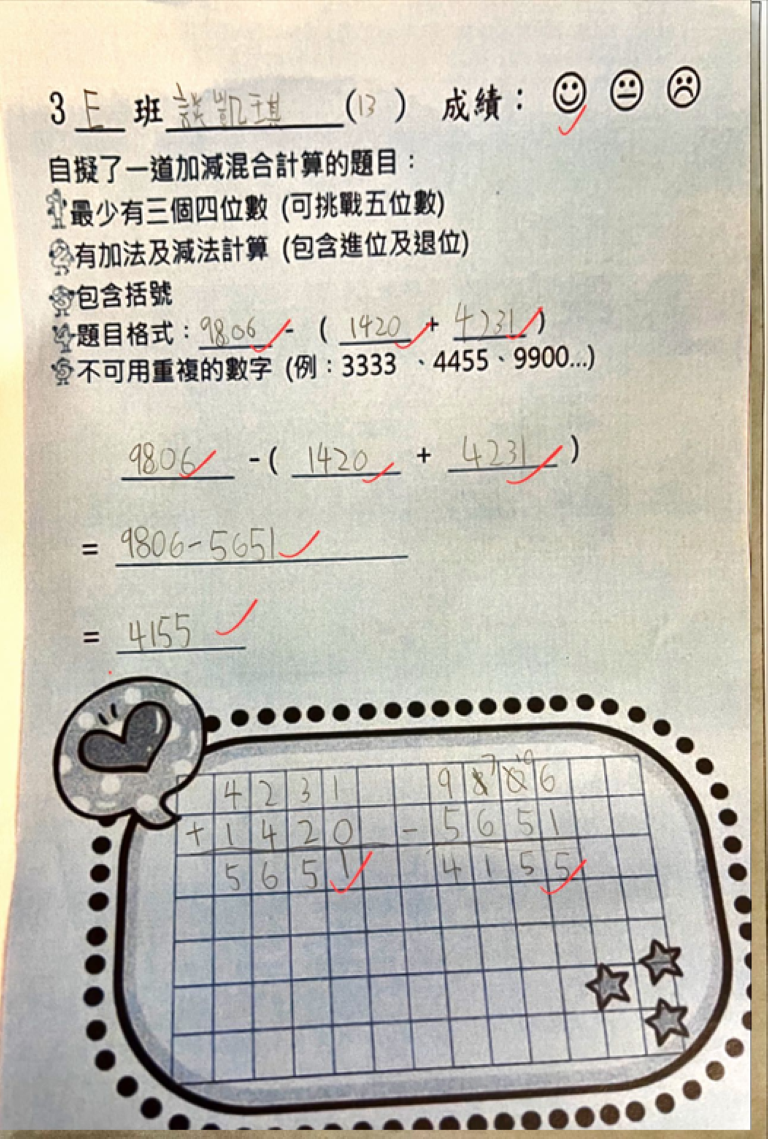 3 E 班 談凱琪 (13) 成績：
自擬了一道加減混合計算的題目：
最少有三個四位數 (可挑戰五位數)
有加法及減法計算 (包含進位及退位)
包含括號
題目格式：9806 - ( 1420 + 4231 )
不可用重複的數字 (例：3333 、4455、9900...)
9806 - ( 1420 + 4231 )
= 9806-5651
= 4155
4231 9806
+1420 -5651
5651 4155